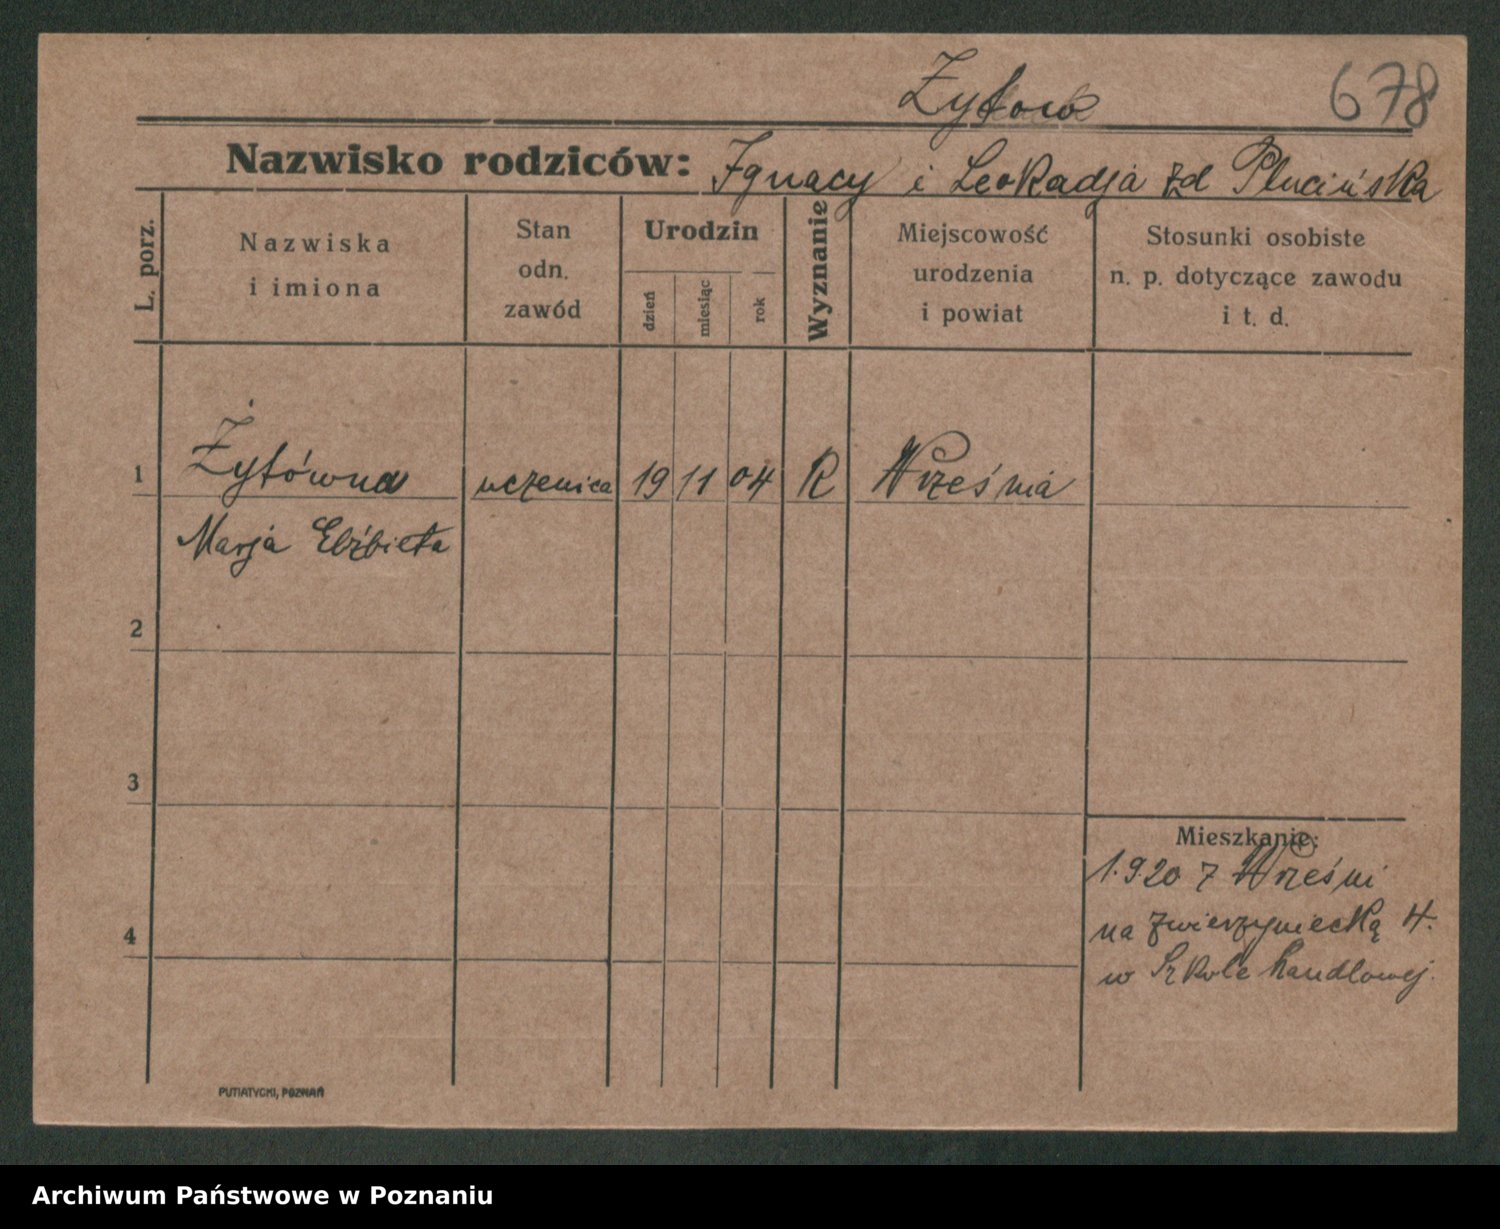 Żytow 678
Nazwisko rodziców: Ignacy i Leokadja zd Plucińska
L. porz.
Nazwiska
i imiona
Stan
odn.
zawód
Urodzin
dzień
miesiąc
rok
Wyznanie
Miejscowość
urodzenia
i powiat
Stosunki osobiste
n. p. dotyczące zawodu
i t. d.
1 Żytówna uczenica 19 11 04 R Września
Marja Elżbieta
2
3
4
Mieszkanie:
1.9.20 z Wześni
na Zwierzyniecką 4.
w Szkole handlowej.
PUTIATYCKI, POZNAŃ
Archiwum Państwowe w Poznaniu